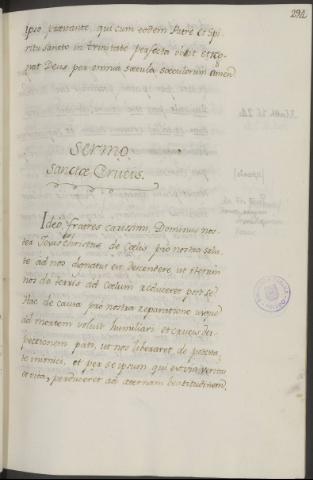 294
ipso præstante, qui cum eodem Patre et Spi-
ritu sancto in trinitate perfecta vivit et reg-
nat Deus per omnia sæcula sæculorum amen
Sermo
sanctæ Crucis.
Ideo, fratres carissimi, Dominus nos-
ter Jesus Christus de Cœlis pro nostra salu-
te ad nos dignatus est descendere, ut iterum
nos de terris ad Cœlum reduceret per se
Hac de causa pro nostra reparatione usque
ad mortem voluit humiliari et crucis
passionem pati, ut nos liberaret de potesta-
te inimici, et per se ipsum qui est via veritas
et vita, perduceret ad æternam beatitudinem